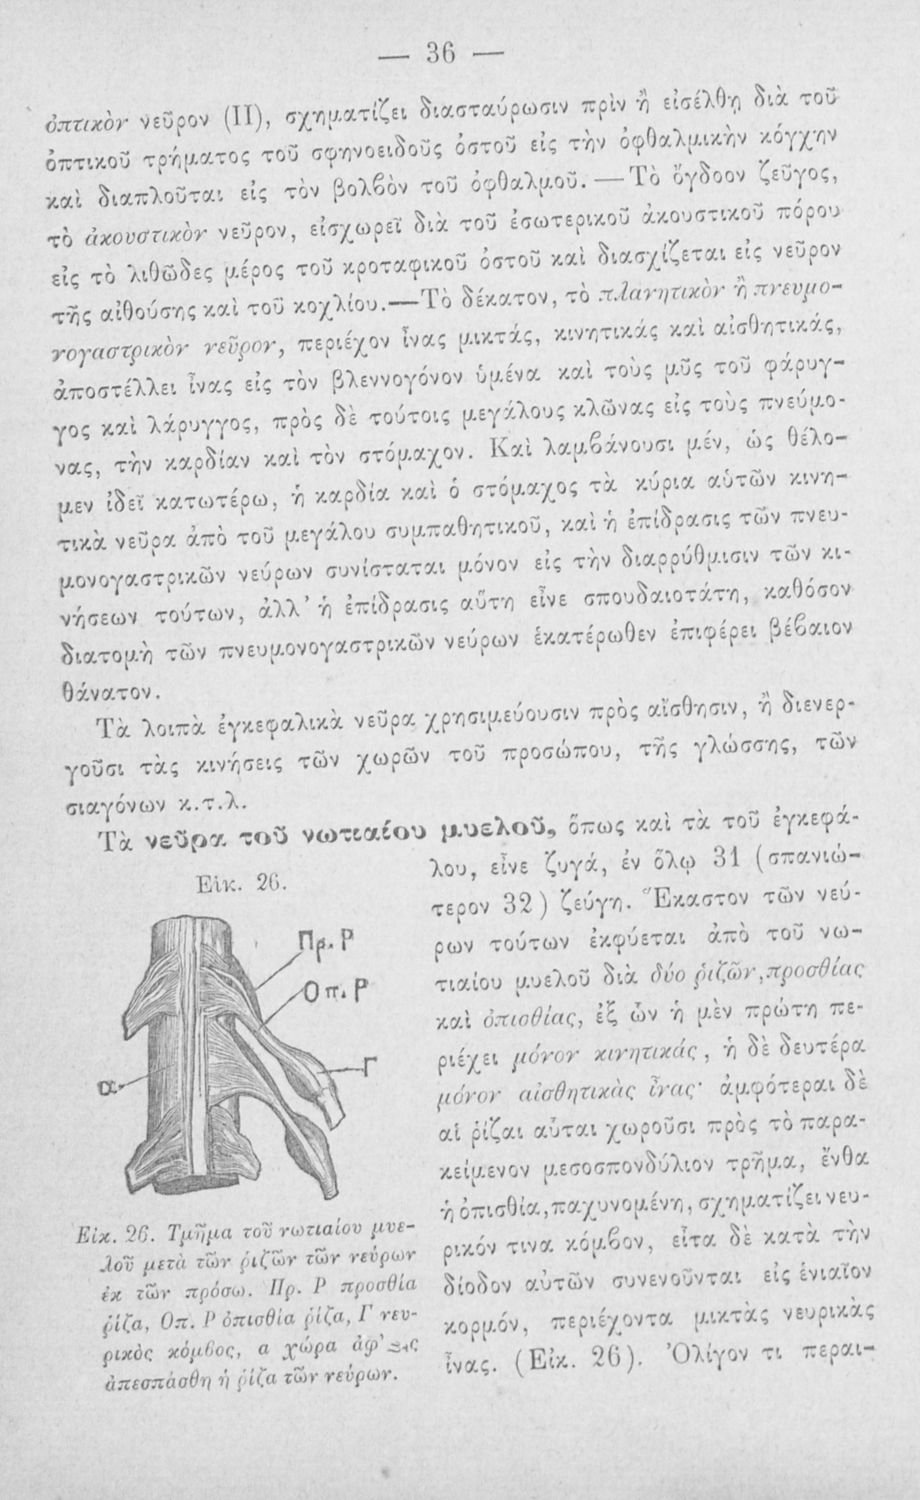 — 36 —
ὀπτικὸν νεῦρον (II), σχηματίζει διασταύρωσιν πρὶν ἢ εἰσέλθῃ διὰ τοῦ
ὀπτικοῦ τρήματος τοῦ σφηνοειδοῦς ὀστοῦ εἰς τὴν ὀφθαλμικὴν κόγχην
καὶ διαπλοῦται εἰς τὸν βολβὸν τοῦ ὀφθαλμοῦ. — Τὸ ὄγδοον ζεῦγος,
τὸ ἀκουστικὸν νεῦρον, εἰσχωρεῖ διὰ τοῦ ἐσωτερικοῦ ἀκουστικοῦ πόρου
εἰς τὸ λιθῶδες μέρος τοῦ κροταφικοῦ ὀστοῦ καὶ διασχίζεται εἰς νεῦρον
τῆς αἰθούσης καὶ τοῦ κοχλίου.—Τὸ δέκατον, τὸ πλανητικὸν ἢ πνευμο-
νογαστρικὸν νεῦρον, περιέχον ἶνας μικτάς, κινητικάς καὶ αἰσθητικάς,
ἀποστέλλει ἶνας εἰς τὸν βλεννογόνον ὑμένα καὶ τοὺς μῦς τοῦ φάρυγ-
γος καὶ λάρυγγος, πρὸς δὲ τούτοις μεγάλους κλῶνας εἰς τοὺς πνεύμο-
νας, τὴν καρδίαν καὶ τὸν στόμαχον. Καὶ λαμβάνουσι μέν, ὡς θέλο-
μεν ἰδεῖ κατωτέρω, ἡ καρδία καὶ ὁ στόμαχος τὰ κύρια αὑτῶν κινη-
τικὰ νεῦρα ἀπὸ τοῦ μεγάλου συμπαθητικοῦ, καὶ ἡ ἐπίδρασις τῶν πνευ-
μονογαστρικῶν νεύρων συνίσταται μόνον εἰς τὴν διαρρύθμισιν τῶν κι-
νήσεων τούτων, ἀλλ' ἡ ἐπίδρασις αὕτη εἶνε σπουδαιοτάτη, καθόσον
διατομὴ τῶν πνευμονογαστρικῶν νεύρων ἑκατέρωθεν ἐπιφέρει βέβαιον
θάνατον.
Τὰ λοιπὰ ἐγκεφαλικὰ νεῦρα χρησιμεύουσιν πρὸς αἴσθησιν, ἢ διενερ-
γοῦσι τὰς κινήσεις τῶν χωρῶν τοῦ προσώπου, τῆς γλώσσης, τῶν
σιαγόνων κ.τ.λ.
Τὰ νεῦρα τοῦ νωτιαίου μυελοῦ, ὅπως καὶ τὰ τοῦ ἐγκεφά-
λου, εἶνε ζυγά, ἐν ὅλῳ 31 (σπανιώ-
τερον 32) ζεύγη. Ἕκαστον τῶν νεύ-
ρων τούτων ἐκφύεται ἀπὸ τοῦ νω-
τιαίου μυελοῦ διὰ δύο ῥιζῶν, προσθίας
καὶ ὀπισθίας, ἐξ ὧν ἡ μὲν πρώτη πε-
ριέχει μόνον κινητικάς, ἡ δὲ δευτέρα
μόνον αἰσθητικὰς ἶνας· ἀμφότεραι δὲ
αἱ ῥίζαι αὗται χωροῦσι πρὸς τὸ παρα-
κείμενον μεσοσπονδύλιον τρῆμα, ἔνθα
ἡ ὀπισθία, παχυνομένη, σχηματίζει νευ-
ρικόν τινα κόμβον, εἶτα δὲ κατὰ τὴν
δίοδον αὐτῶν συνενοῦνται εἰς ἑνιαῖον
κορμόν, περιέχοντα μικτὰς νευρικὰς
ἶνας. (Εἰκ. 26). Ὀλίγον τι περαι-
Εἰκ. 26.
Πρ. Ρ
Οπ. Ρ
Γ
α
Εἰκ. 26. Τμῆμα τοῦ νωτιαίου μυε-
λοῦ μετὰ τῶν ῥιζῶν τῶν νεύρων
ἐκ τῶν πρόσω. Πρ. Ρ προσθία
ῥίζα, Οπ. Ρ ὀπισθία ῥίζα, Γ νευ-
ρικὸς κόμβος, α χώρα ἀφ'
ἀπεσπάσθη ἡ ῥίζα τῶν νεύρων.